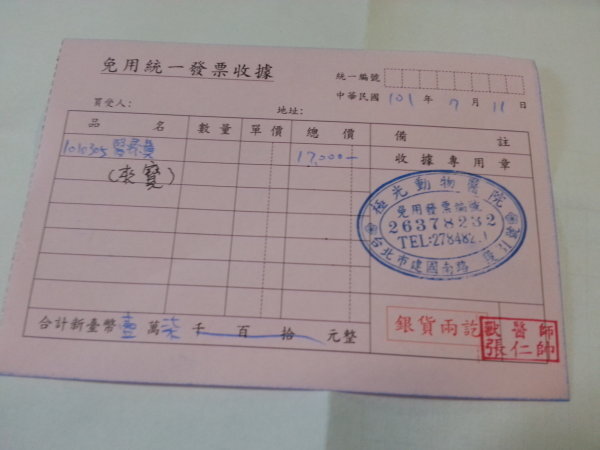 免用統一發票收據
統一編號
中華民國 101 年 7 月 11 日
買受人: 地址:
品名 數量 單價 總價 備註
1010305 醫療費 17,000-
收據專用章
極光動物醫院
免用發票編號
26378232
TEL:278482
台北市建國南路
合計新臺幣 壹 萬 柒 仟 百 拾 元整
銀貨兩訖
獸醫師
張仁帥